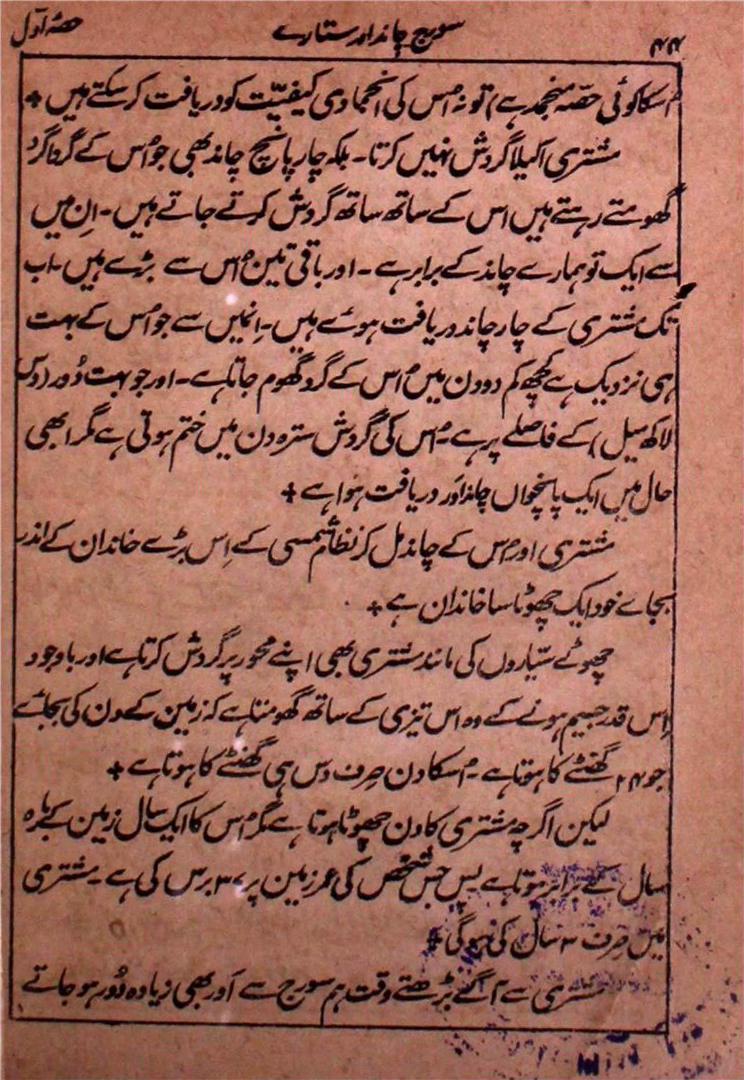 ۴۴ سورج چاند اور ستارے حصۂ اوّل
اُسکا کوئی حصّہ منجمد ہے) تو نہ اُس کی انجمادی کیفیّت کو دریافت کر سکتے ہیں +
مشتری اکیلا گردش نہیں کرتا۔ بلکہ چار پانچ چاند بھی جو اُس کے گرداگرد
گھومتے رہتے ہیں اس کے ساتھ ساتھ گردش کرتے جاتے ہیں۔ اِن میں
سے ایک تو ہمارے چاند کے برابر ہے۔ اور باقی تین اُس سے بڑے ہیں۔ اب
تک مشتری کے چار چاند دریافت ہوئے ہیں۔ اِنمیں سے جو اُس کے بہت
ہی نزدیک ہے کچھ کم دو دن میں اُس کے گرد گھوم جاتا ہے۔ اور جو بہت دُور (دس
لاکھ میل) کے فاصلے پر ہے۔ اُس کی گردش سترہ دن میں ختم ہوتی ہے مگر ابھی
حال میں ایک پانچواں چاند اَور دریافت ہوا ہے +
مشتری اور اُس کے چاند مل کر نظامِ شمسی کے اِس بڑے خاندان کے اندر
بجاے خود ایک چھوٹا سا خاندان ہے +
چھوٹے ستیاروں کی مانند مشتری بھی اپنے محور پر گردش کرتا ہے اور باوجود
اِس قدر جسیم ہونے کے وہ اس تیزی کے ساتھ گھومتا ہے کہ زمین کے دن کی بجائے
جو ۲۴ گھنٹے کا ہوتا ہے۔ اُسکا دن صرف دس ہی گھنٹے کا ہوتا ہے +
لیکن اگرچہ مشتری کا دن چھوٹا ہوتا ہے مگر اُس کا ایک سال زمین کے بارہ
سال کے برابر ہوتا ہے پس جس شخص کی عمر زمین پر ۳۷ برس کی ہے۔ مشتری
میں صرف ۳ سال کی ہوگی +
مشتری سے آگے بڑھتے وقت ہم سورج سے اَور بھی زیادہ دُور ہو جاتے